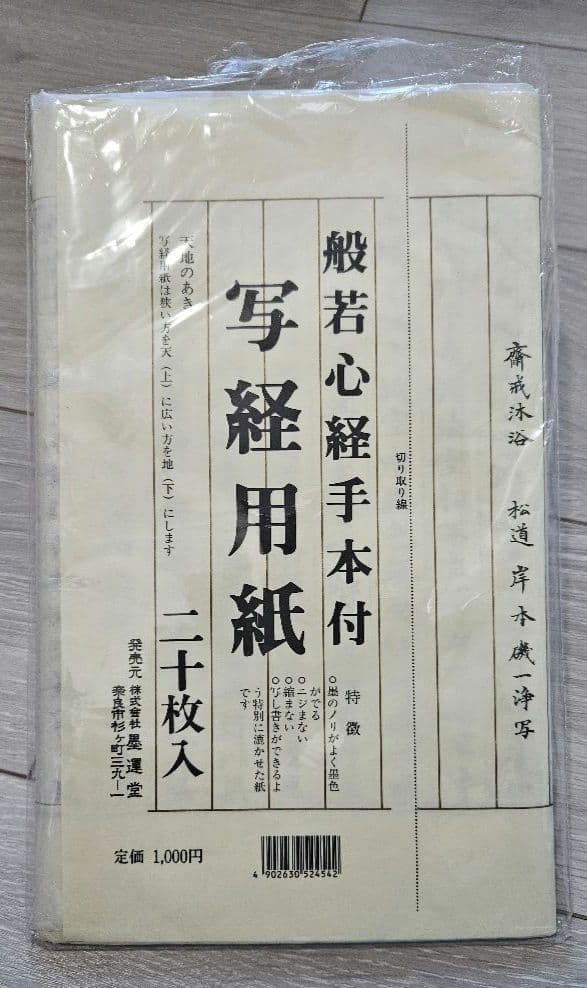 齋戒沐浴　松道　岸本磯一浄写
切り取り線
般若心経手本付
写経用紙
二十枚入
特徴
○墨のノリがよく墨色
がでる
○ニジまない
○縮まない
○写し書きができるよ
う特別に漉かせた紙
です
天地のあき
写経用紙は狭い方を天（上）に広い方を地（下）にします
発売元　株式会社　墨運堂
奈良市杉ヶ町三九ー一
定価 1,000円
4 902630 524542